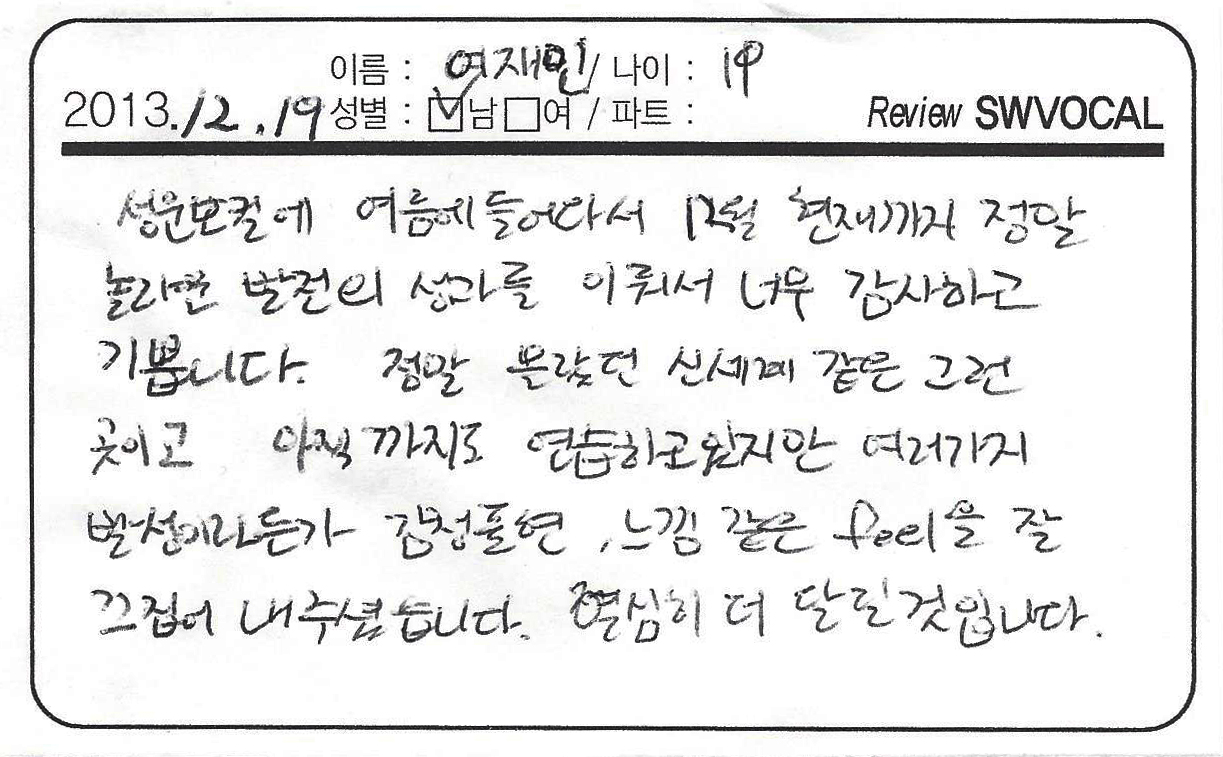 이름 : 여재민 / 나이 : 19
2013.12.19 성별 : ☑남 □여 / 파트 : Review SWVOCAL
성운보컬에 여름에 들어와서 12월 현재까지 정말
놀라면 발전의 성과를 이뤄서 너무 감사하고
기쁩니다. 정말 몰랐던 신세계 같은 그런
곳이고 아직 까지도 연습하고있지만 여러가지
발성이라든가 감정표현, 느낌 같은 feel을 잘
끄집어 내주셨습니다. 열심히 더 달릴것입니다.